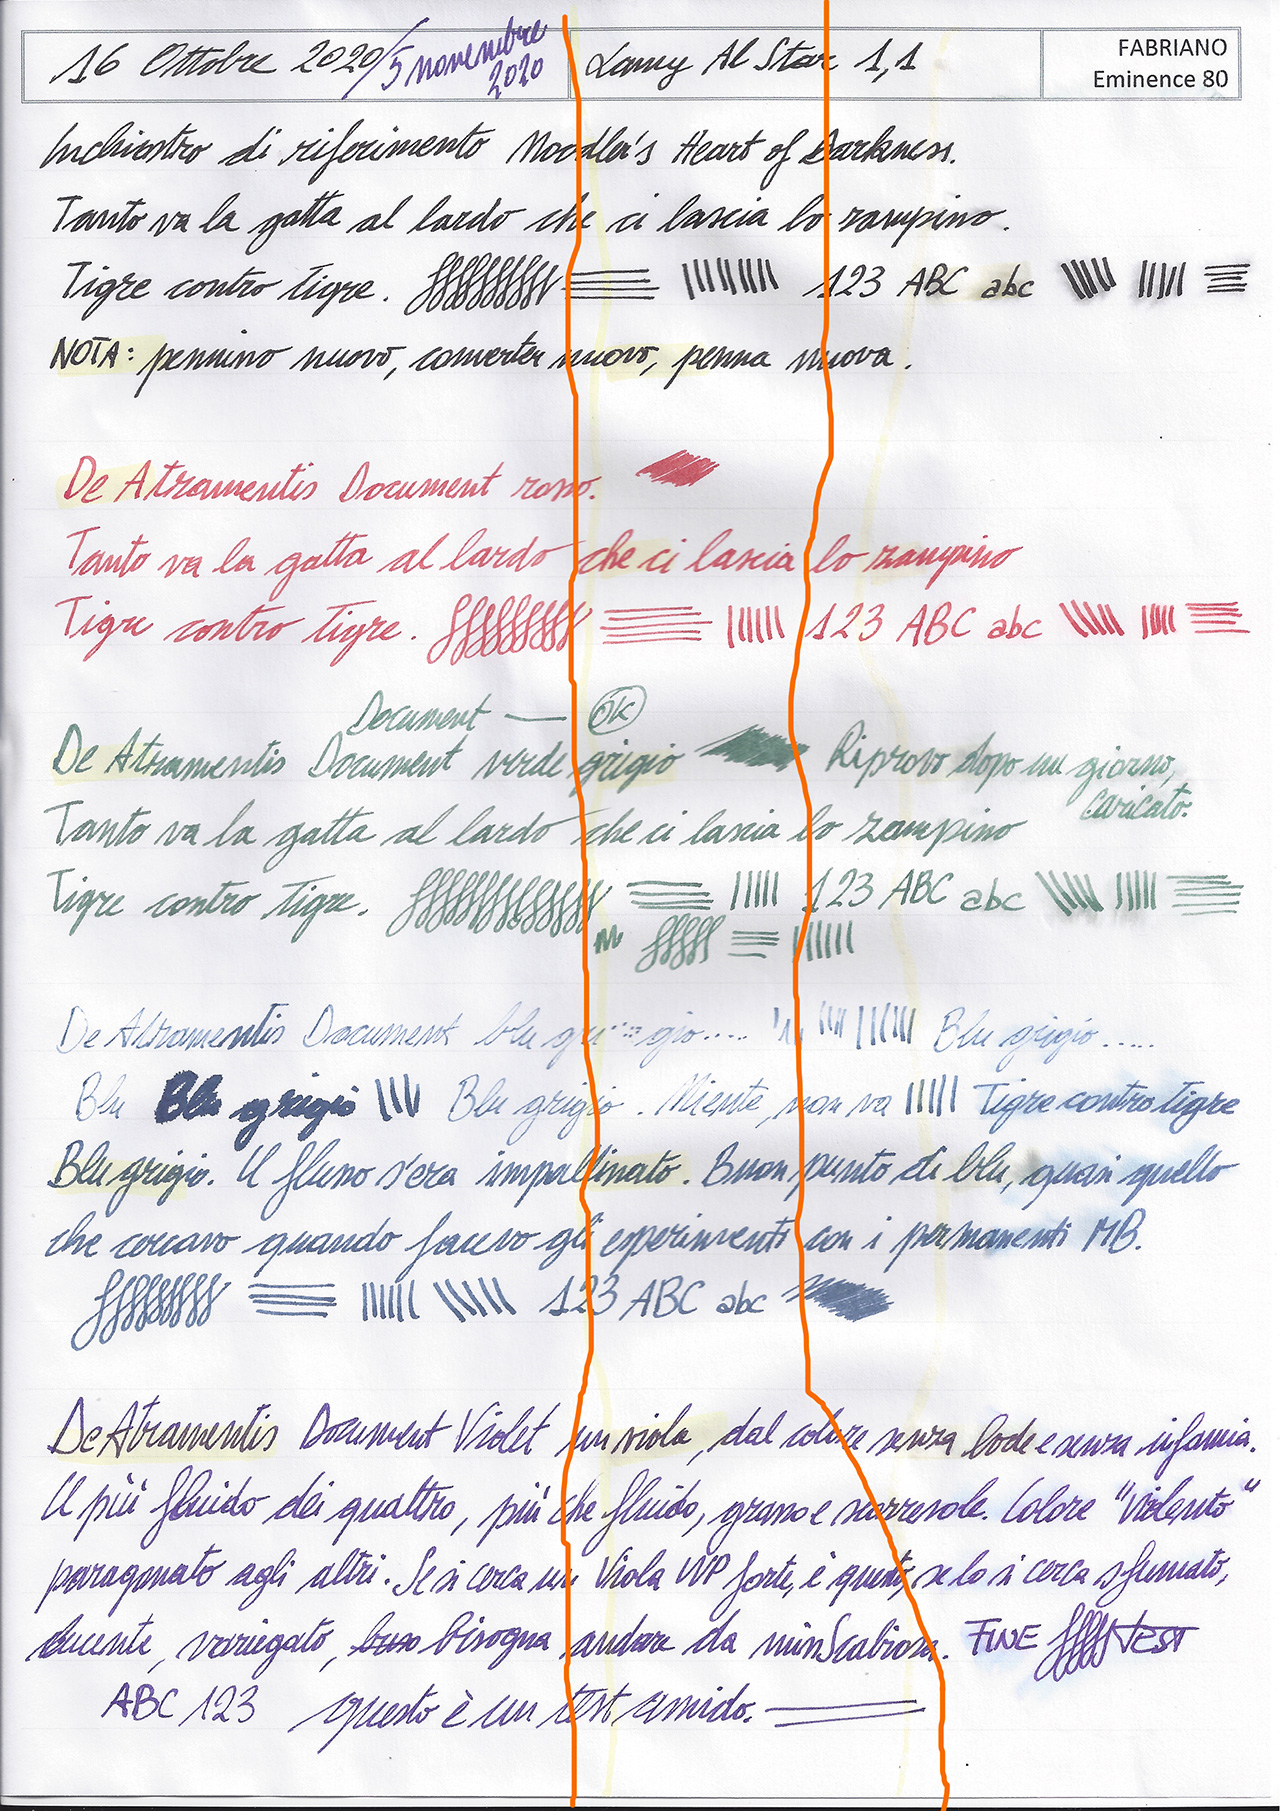 16 Ottobre 2020/5 novembre 2020 Lamy Al Star 1,1 FABRIANO Eminence 80
Inchiostro di riferimento Noodler's Heart of Darkness.
Tanto va la gatta al lardo che ci lascia lo zampino.
Tigre contro tigre. 123 ABC abc
NOTA: pennino nuovo, converter nuovo, penna nuova.
De Atramentis Document rosso.
Tanto va la gatta al lardo che ci lascia lo zampino
Tigre contro tigre. 123 ABC abc
Document — OK
De Atramentis Document verde grigio Riprovo dopo un giorno, caricato.
Tanto va la gatta al lardo che ci lascia lo zampino
Tigre contro tigre. 123 ABC abc
De Atramentis Document blu gri gio..... Blu grigio.....
Blu Blu grigio Blu grigio. Niente, non va Tigre contro tigre
Blu grigio. Il flusso s'era impallinato. Buon punto di blu, quasi quello
che cercavo quando facevo gli esperimenti con i permanenti MB.
123 ABC abc
De Atramentis Document Violet un viola, dal colore senza lode e senza infamia.
Il più fluido dei quattro, più che fluido, grasso e scorrevole. Colore "violento"
paragonato agli altri. Se si cerca un Viola WP forte, è questo, se lo si cerca sfumato,
lucente, variegato, bisogna andare da Scabiosa. FINE TEST
ABC 123 questo è un test umido.